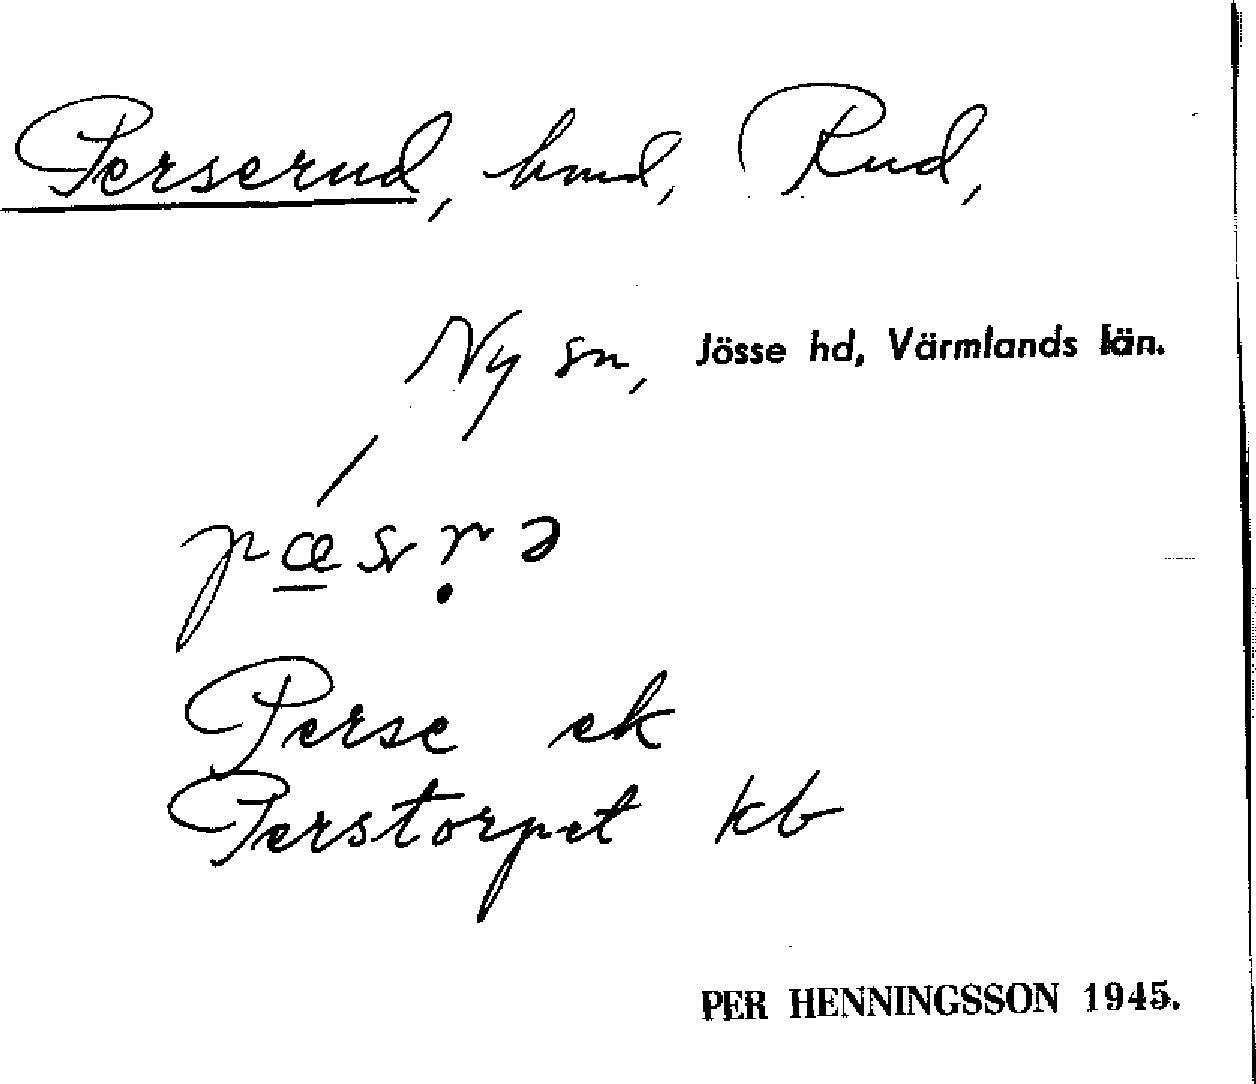 Perserud, hmd, Rud,
Ny sn, Jösse hd, Värmlands län.
pæsṛə
Perse ek
Perstorpet kb
PER HENNINGSSON 1945.